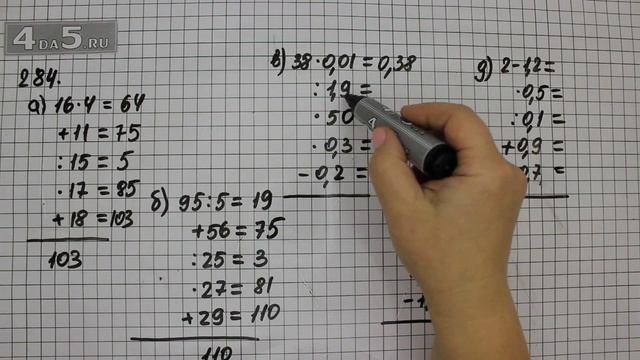 4DA5.RU
284.
а) 16·4=64
+11=75
:15=5
·17=85
+18=103
103
б) 95:5=19
+56=75
:25=3
·27=81
+29=110
110
в) 38·0,01=0,38
:1,9=
·50
·0,3=
-0,2=
д) 2-1,2=
·0,5=
:0,1=
+0,9=
0,7=